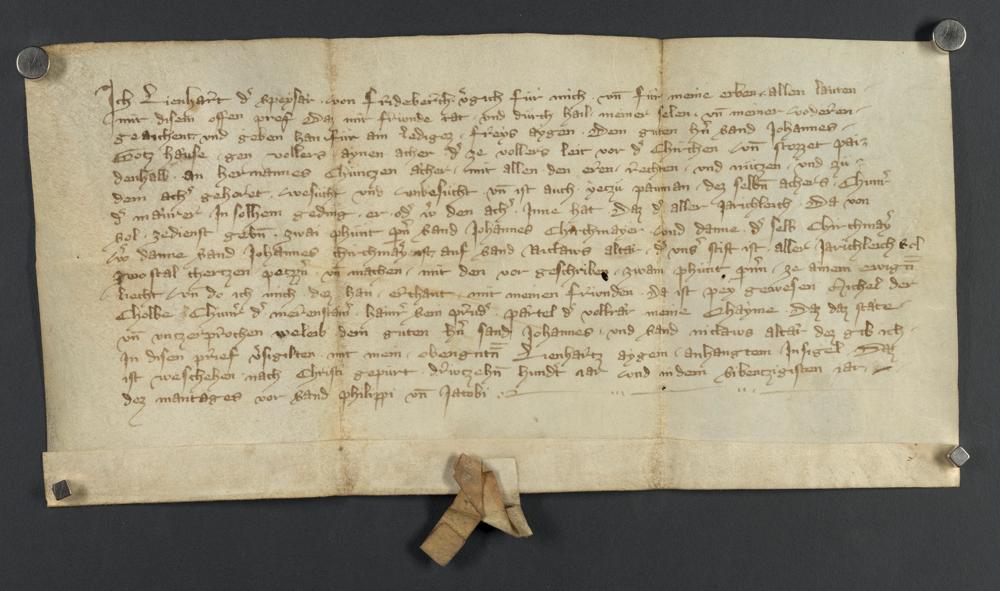 Ich Lienhart d̄ Speysār von Frideberch v̄gich für mich vn̄ für meine erben allen läuten
mit disem offen prief Daz mit fründe rat und durch hail meiner selen vn̄ meiner voderen
geaichent und geben han für ain ledigez freys aygen Dem guten hn̄ Sand Johannes
Gotz hause gen vollers aynen acher d̄ ze vollers leit vor d̄ Chirchen vn̄ stozzet pai
denhalb an hermannes Chüntzen acher mit allen den eren rechten und nützen und zü
dem ach̄ gehoret wesücht und unwesücht vn̄ ist auch yeczü pauman dez selbn̄ achers Chunr̄
d̄ maurer In solhem geding er od̄ w̄ den ach̄ Inne hat Daz d̄ aller Jarichleich Da von
sol zedienst gebn̄ zwai phunt Sand Johannes Chirchmayer und danne d̄ selb Chirchmay̆
w̄ danne Sand Johannes Chirchmay̆ ist auf Sand Niclaws altar d̄ uns̄ stift ist aller Jarichleich sol
zwo stal cherczen vn̄ machen mit den vor geschriben zwain phunt ze ainem ewign̄
liecht vn̄ do ich mich dez han erchant mit meinen fründen Da ist pey gewesen Michel der
Cholbe Chunr̄ d̄ pārtel d̄ vollrār meine Daz daz stāte
vn̄ unczerprochen weleib dem guten hn̄ sand Johannes und Sand nicklaws altār dez gib ich
In disen prief v̄sigilten mit mein obengntn̄ Lienhartz aygem anhangtem Insigel Daz
ist weschehen nach Christi gepürt drewtzehn̄ hundt iar und in dem Sibentzigisten iar
dez mantages vor Sand Philippi vn̄ Jacobi